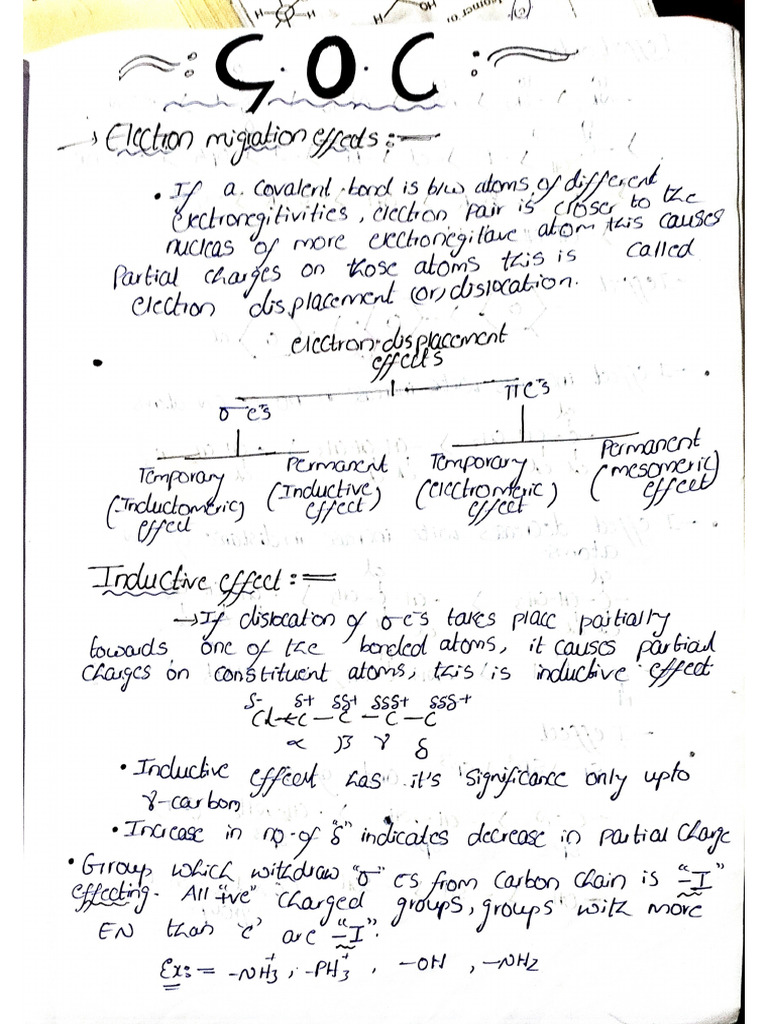 G.O.C
→ Electron migration effects :—
• If a covalent bond is b/w atoms of different
electronegitivities, electron pair is closer to the
nucleas of more electronegitave atom this causes
Partial charges on those atoms this is called
electron displacement (or) dislocation.
electron displacement
effects
σ e⁻s
π e⁻s
Temporary
(Inductomeric)
effect
Permanent
(Inductive)
effect
Temporary
(electromeric)
effect
Permanent
(mesomeric)
effect
Inductive effect :=
→ If dislocation of σ e⁻s takes place partially
towards one of the bonded atoms, it causes partial
charges on constituent atoms, this is inductive effect
δ- δ+ δδ+ δδδ+ δδδ+
Cl←C – C – C – C
α β γ δ
• Inductive effect has it's significance only upto
γ-carbon
• Increase in no. of "δ" indicates decrease in partial charge
• Group which withdraw "σ" es from carbon chain is "-I"
effecting. All "+ve" charged groups, groups with more
EN than 'c' are "-I".
Ex:= -NH₃⁺, -PH₃⁺, -OH, -NH₂